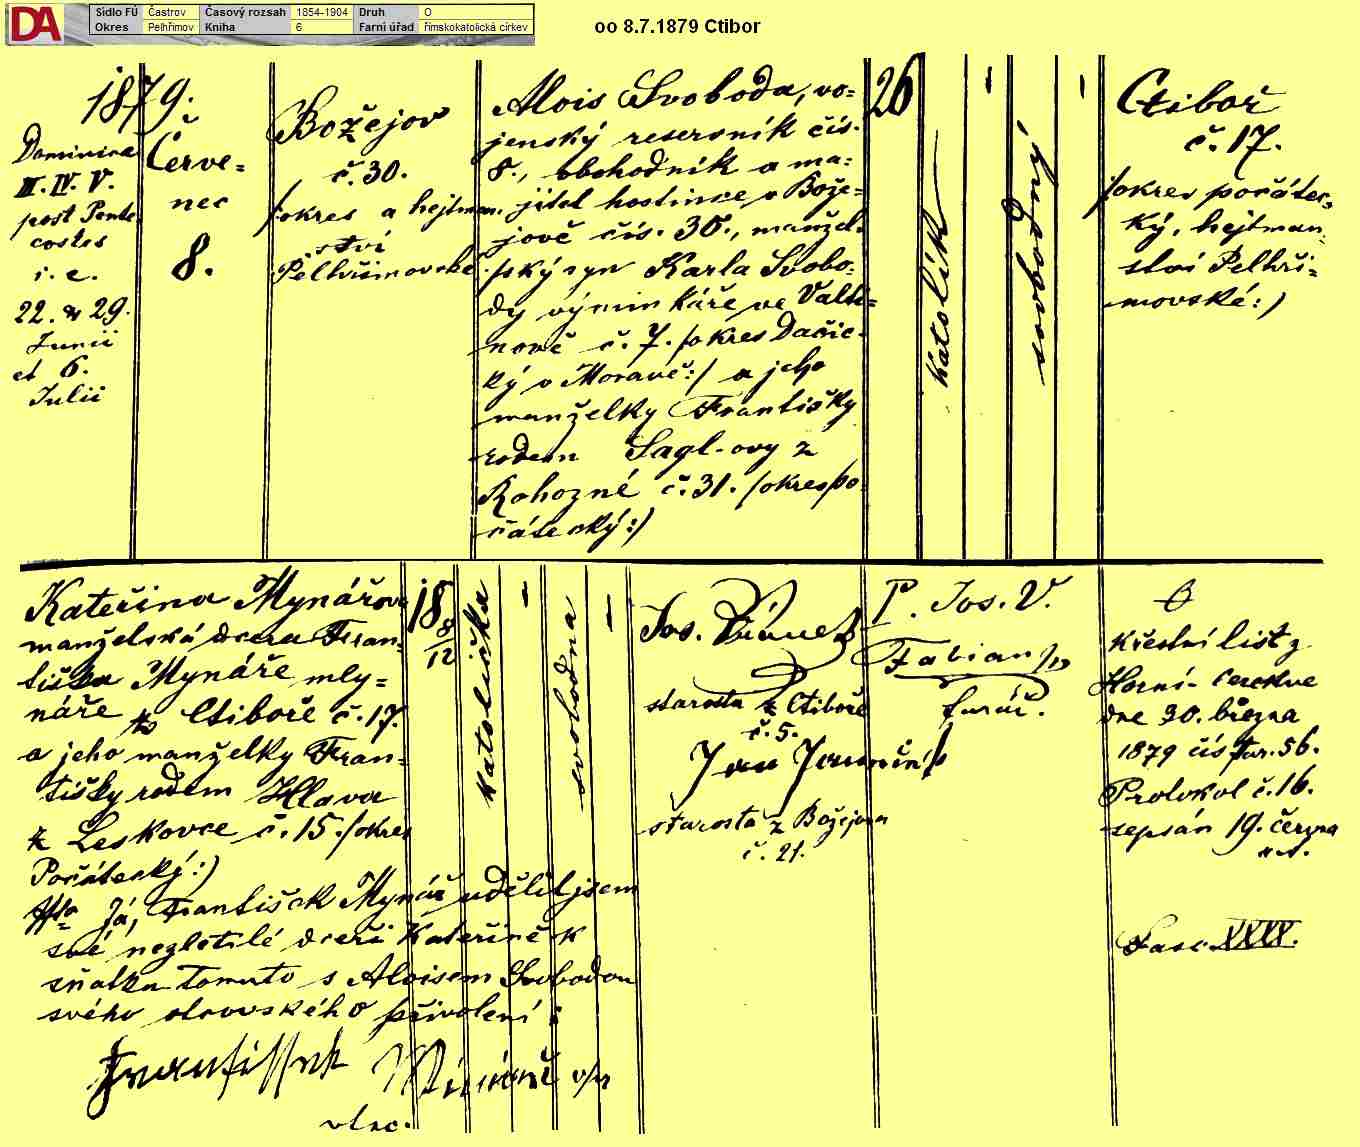 Sídlo FÚ Častrov Časový rozsah 1854-1904 Druh O
Okres Pelhřimov Kniha 6 Farní úřad římskokatolická církev
DA
oo 8.7.1879 Ctibor
1879.
Dominica
III. IV. V.
post Pente
costes
i. e.
22. & 29.
Junii
et 6.
Julii
Červe=
nec
8.
Božejov
č. 30.
/:okres a hejtman.
ství
Pelhřimovské
Alois Svoboda, vo=
jenský reservník čís.
8., obchodník a ma=
jitel hostince v Bože=
jově čís. 30., manžel.
ský syn Karla Svobo=
dy výminkáře ve Valti=
nově č. 7. /okres Dačic=
ký v Moravě:/ a jeho
manželky Františky
rodem Sagl-ovy z
Rohozné č. 31. /okres po=
čátecký:/
26
katolík
svobodný
Ctiboř
č. 17.
/okres počátec=
ký, hejtman=
ství Pelhři=
movské:/
Kateřina Mynářova
manželská dcera Fran=
tiška Mynáře mly=
náře z Ctiboře č. 17.
a jeho manželky Fran=
tišky rodem Hlava
z Leskovce č. 15. /okres
Počátecký:/
Já, František Mynář udělil jsem
své nezletilé dceři Kateřině k
sňatku tomuto s Aloisem Svobodou
svého otcovského přivolení:
Frantisssek
vlac.
18 8/12
katolička
svobodna
Jos.
starosta z Ctiboře
č. 5.
Jan
starosta z Božejova
č. 21.
P. Jos. V.
Fabian
farář.
Křestní list z
Horní- Cerekve
dne 30. března
1879 čís. far. 56.
Protokol č. 16.
sepsán 19. června
Fasc. XXXX.